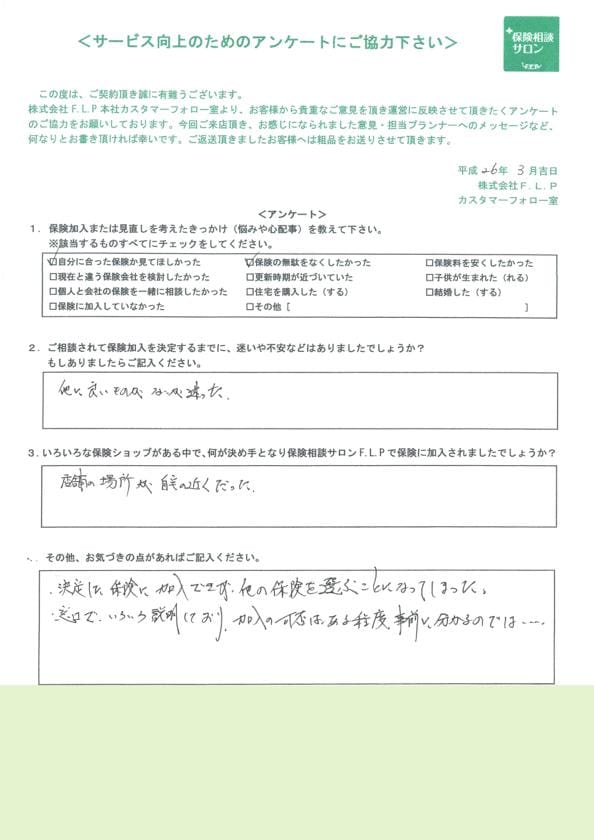 ＜サービス向上のためのアンケートにご協力下さい＞
保険相談
サロン
F.L.P
この度は、ご契約頂き誠に有難うございます。
株式会社F.L.P本社カスタマーフォロー室より、お客様から貴重なご意見を頂き運営に反映させて頂きたくアンケート
のご協力をお願いしております。今回ご来店頂き、お感じになられました意見・担当プランナーへのメッセージなど、
何なりとお書き頂ければ幸いです。ご返送頂きましたお客様へは粗品をお送りさせて頂きます。
平成 26年 3月吉日
株式会社F.L.P
カスタマーフォロー室
＜アンケート＞
１．保険加入または見直しを考えたきっかけ（悩みや心配事）を教えて下さい。
※該当するものすべてにチェックをしてください。
☑自分に合った保険か見てほしかった ☑保険の無駄をなくしたかった □保険料を安くしたかった
□現在と違う保険会社を検討したかった □更新時期が近づいていた □子供が生まれた（れる）
□個人と会社の保険を一緒に相談したかった □住宅を購入した（する） □結婚した（する）
□保険に加入していなかった □その他［ ］
２．ご相談されて保険加入を決定するまでに、迷いや不安などはありましたでしょうか？
もしありましたらご記入ください。
他に良いものがないか迷った.
３．いろいろな保険ショップがある中で、何が決め手となり保険相談サロンF.L.Pで保険に加入されましたでしょうか？
店舗の場所が自宅の近くだった.
その他、お気づきの点があればご記入ください。
・決定した保険に加入できず、他の保険を選ぶことになってしまった。
・窓口で、いろいろ説明しており、加入の可否はある程度、事前に分かるのでは……